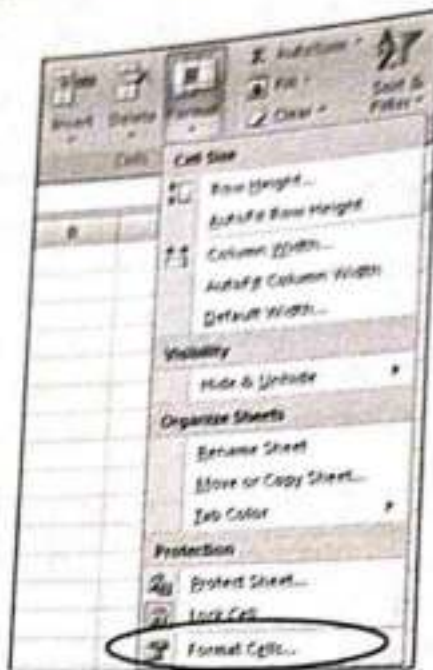 Insert Delete Format
Σ AutoSum
Fill
Clear
Sort &
Filter
Cells
Cell Size
Row Height...
AutoFit Row Height
Column Width...
AutoFit Column Width
Default Width...
Visibility
Hide & Unhide
Organize Sheets
Rename Sheet
Move or Copy Sheet...
Tab Color
Protection
Protect Sheet...
Lock Cell
Format Cells...